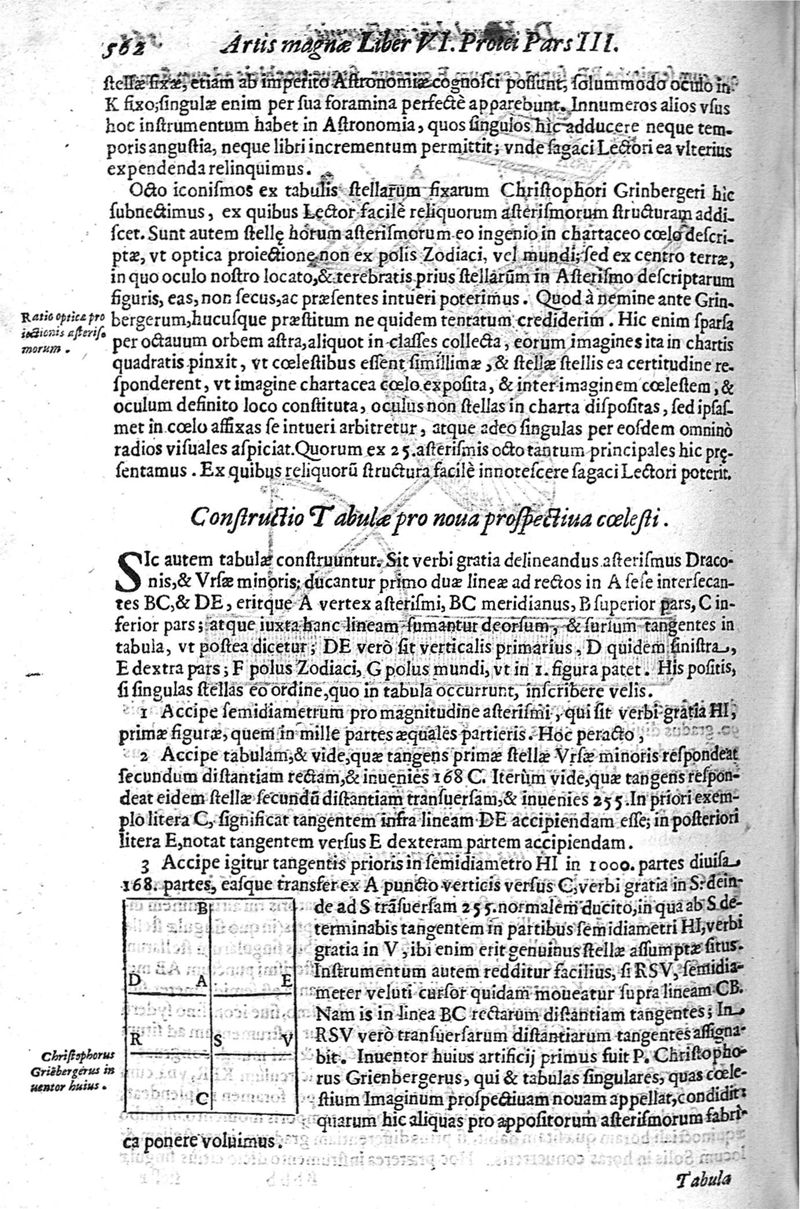 562 Artis magnæ Liber VI. Protei Pars III.
ſtellæ fixæ, etiam ab imperito Aſtronomiæ cognoſci poſſunt, ſolummodo oculo in
K fixo; ſingulæ enim per ſua foramina perfectè apparebunt. Innumeros alios vſus
hoc inſtrumentum habet in Aſtronomia, quos ſingulos hic adducere neque tem-
poris anguſtia, neque libri incrementum permittit; vnde ſagaci Lectori ea vlterius
expendenda relinquimus.
Octo iconiſmos ex tabulis ſtellarum fixarum Chriſtophori Grinbergeri hic
ſubnectimus, ex quibus Lector facilè reliquorum aſteriſmorum ſtructuram addi-
ſcet. Sunt autem ſtellę horum aſteriſmorum eo ingenio in chartaceo cœlo deſcri-
ptæ, vt optica proiectione non ex polis Zodiaci, vel mundi; ſed ex centro terræ,
in quo oculo noſtro locato, & terebratis prius ſtellarum in Aſteriſmo deſcriptarum
figuris, eas, non ſecus, ac præſentes intueri poterimus. Quod à nemine ante Grin-
Ratio optica pro
iectionis aſteriſ-
morum.
bergerum, hucuſque præſtitum ne quidem tentatum crediderim. Hic enim ſparſa
per octauum orbem aſtra, aliquot in claſſes collecta, eorum imagines ita in chartis
quadratis pinxit, vt cœleſtibus eſſent ſimillimæ, & ſtellæ ſtellis ea certitudine re-
ſponderent, vt imagine chartacea cœlo expoſita, & inter imaginem cœleſtem, &
oculum definito loco conſtituta, oculus non ſtellas in charta diſpoſitas, ſed ipſaſ-
met in cœlo affixas ſe intueri arbitretur, atque adeo ſingulas per eoſdem omninò
radios viſuales aſpiciat. Quorum ex 25. aſteriſmis octo tantum principales hic prę-
ſentamus. Ex quibus reliquorū ſtructura facilè innoteſcere ſagaci Lectori poterit.
Conſtructio Tabulæ pro noua proſpectiua cœleſti.
SIc autem tabulæ conſtruuntur. Sit verbi gratia delineandus aſteriſmus Draco-
nis, & Vrſæ minoris; ducantur primo duæ lineæ ad rectos in A ſeſe interſecan-
tes BC, & DE, eritque A vertex aſteriſmi, BC meridianus, B ſuperior pars, C in-
ferior pars; atque iuxta hanc lineam ſumantur deorſum, & ſurſum tangentes in
tabula, vt poſtea dicetur; DE verò ſit verticalis primarius, D quidem ſiniſtra,
E dextra pars; F polus Zodiaci, G polus mundi, vt in 1. figura patet. His poſitis,
ſi ſingulas ſtellas eo ordine, quo in tabula occurrunt, inſcribere velis.
1 Accipe ſemidiametrum pro magnitudine aſteriſmi, qui ſit verbi gratia HI,
primæ figuræ, quem in mille partes æquales partieris. Hoc peracto,
2 Accipe tabulam, & vide, quæ tangens primæ ſtellæ Vrſæ minoris reſpondeat
ſecundum diſtantiam rectam, & inuenies 168 C. Iterum vide, quæ tangens reſpon-
deat eidem ſtellæ ſecundū diſtantiam tranſuerſam, & inuenies 255. In priori exem-
plo litera C, ſignificat tangentem infra lineam DE accipiendam eſſe; in poſteriori
litera E, notat tangentem verſus E dexteram partem accipiendam.
3 Accipe igitur tangentis prioris in ſemidiametro HI in 1000. partes diuiſa
168. partes, eaſque transfer ex A puncto verticis verſus C, verbi gratia in S: dein-
de ad S trāſuerſam 255. normalem ducito, in qua ab S de-
terminabis tangentem in partibus ſemidiametri HI, verbi
gratia in V, ibi enim erit genuinus ſtellæ aſſumptæ ſitus.
Inſtrumentum autem redditur facilius, ſi RSV, ſemidia-
meter veluti curſor quidam moueatur ſupra lineam CB.
Nam is in linea BC rectarum diſtantiam tangentes; In
RSV verò tranſuerſarum diſtantiarum tangentes aſſigna-
bit. Inuentor huius artificij primus fuit P. Chriſtopho-
rus Grienbergerus, qui & tabulas ſingulares, quas cœle-
ſtium Imaginum proſpectiuam nouam appellat, condidit:
quarum hic aliquas pro appoſitorum aſteriſmorum fabri-
ca ponere voluimus.
B
D A E
R S V
C
Chriſtophorus
Griēbergerus in
uentor huius.
Tabula